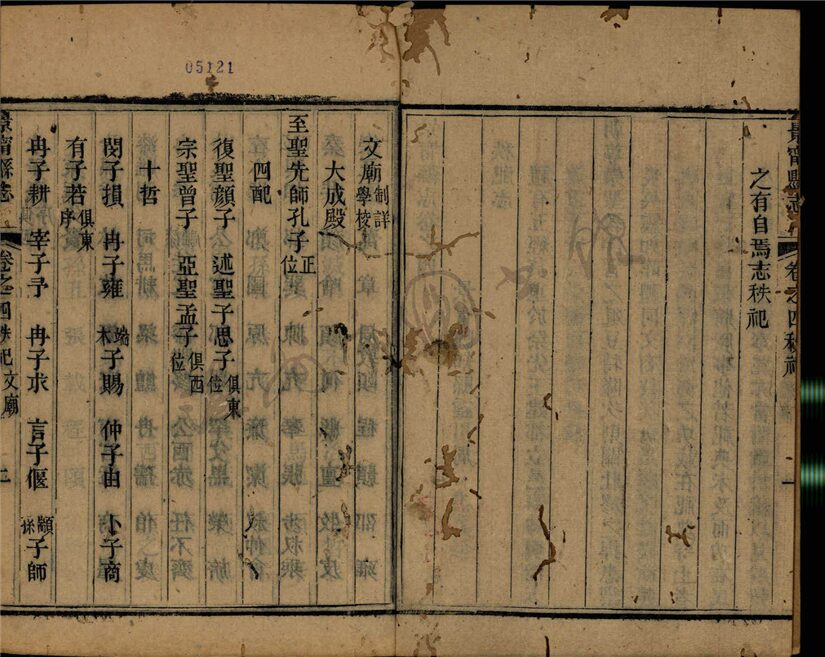 05121
景寧縣志 卷之四秩祀 一
之有自焉志秩祀
文廟制詳學校
大成殿
至聖先師孔子正位
四配
復聖顏子 述聖子思子俱東位
宗聖曾子 亞聖孟子俱西位
十哲
閔子損 冉子雍 端木子賜 仲子由 卜子商
有子若俱東序
冉子耕 宰子予 冉子求 言子偃 顓孫子師
景寧縣志 卷之四秩祀文廟 二